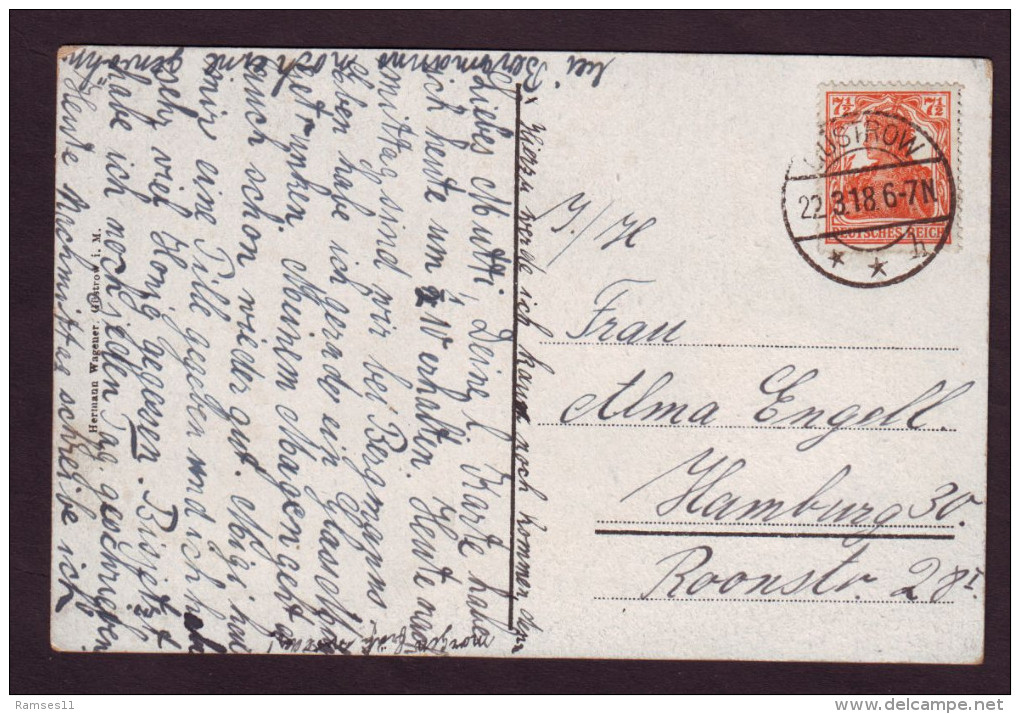 Liebes Mutti, Deine l. Karte habe
ich heute um 10 erhalten. Heute nach
mittag sind wir bei Bergmanns
eben habe ich gerade ein Glas
getrunken. Meinen Magen geht es
auch schon wieder gut. hat
mir eine Pille gegeben und ich habe
sehr viel Honig gegessen. Bis jetzt
habe ich noch jeden Tag geschrieben
Heute Nachmittag schreibe ich
bei Bergmanns
noch eine
Hierzu werde ich kaum noch kommen, denn
morgen früh
Hermann Wagener. Güstrow i. M.
7½ 7½
DEUTSCHES REICH
GÜSTROW
22.3.18.6-7N.
Frau
Alma Engell.
Hamburg 30.
Roonstr. 28 I
Ramses11
delcampe.net